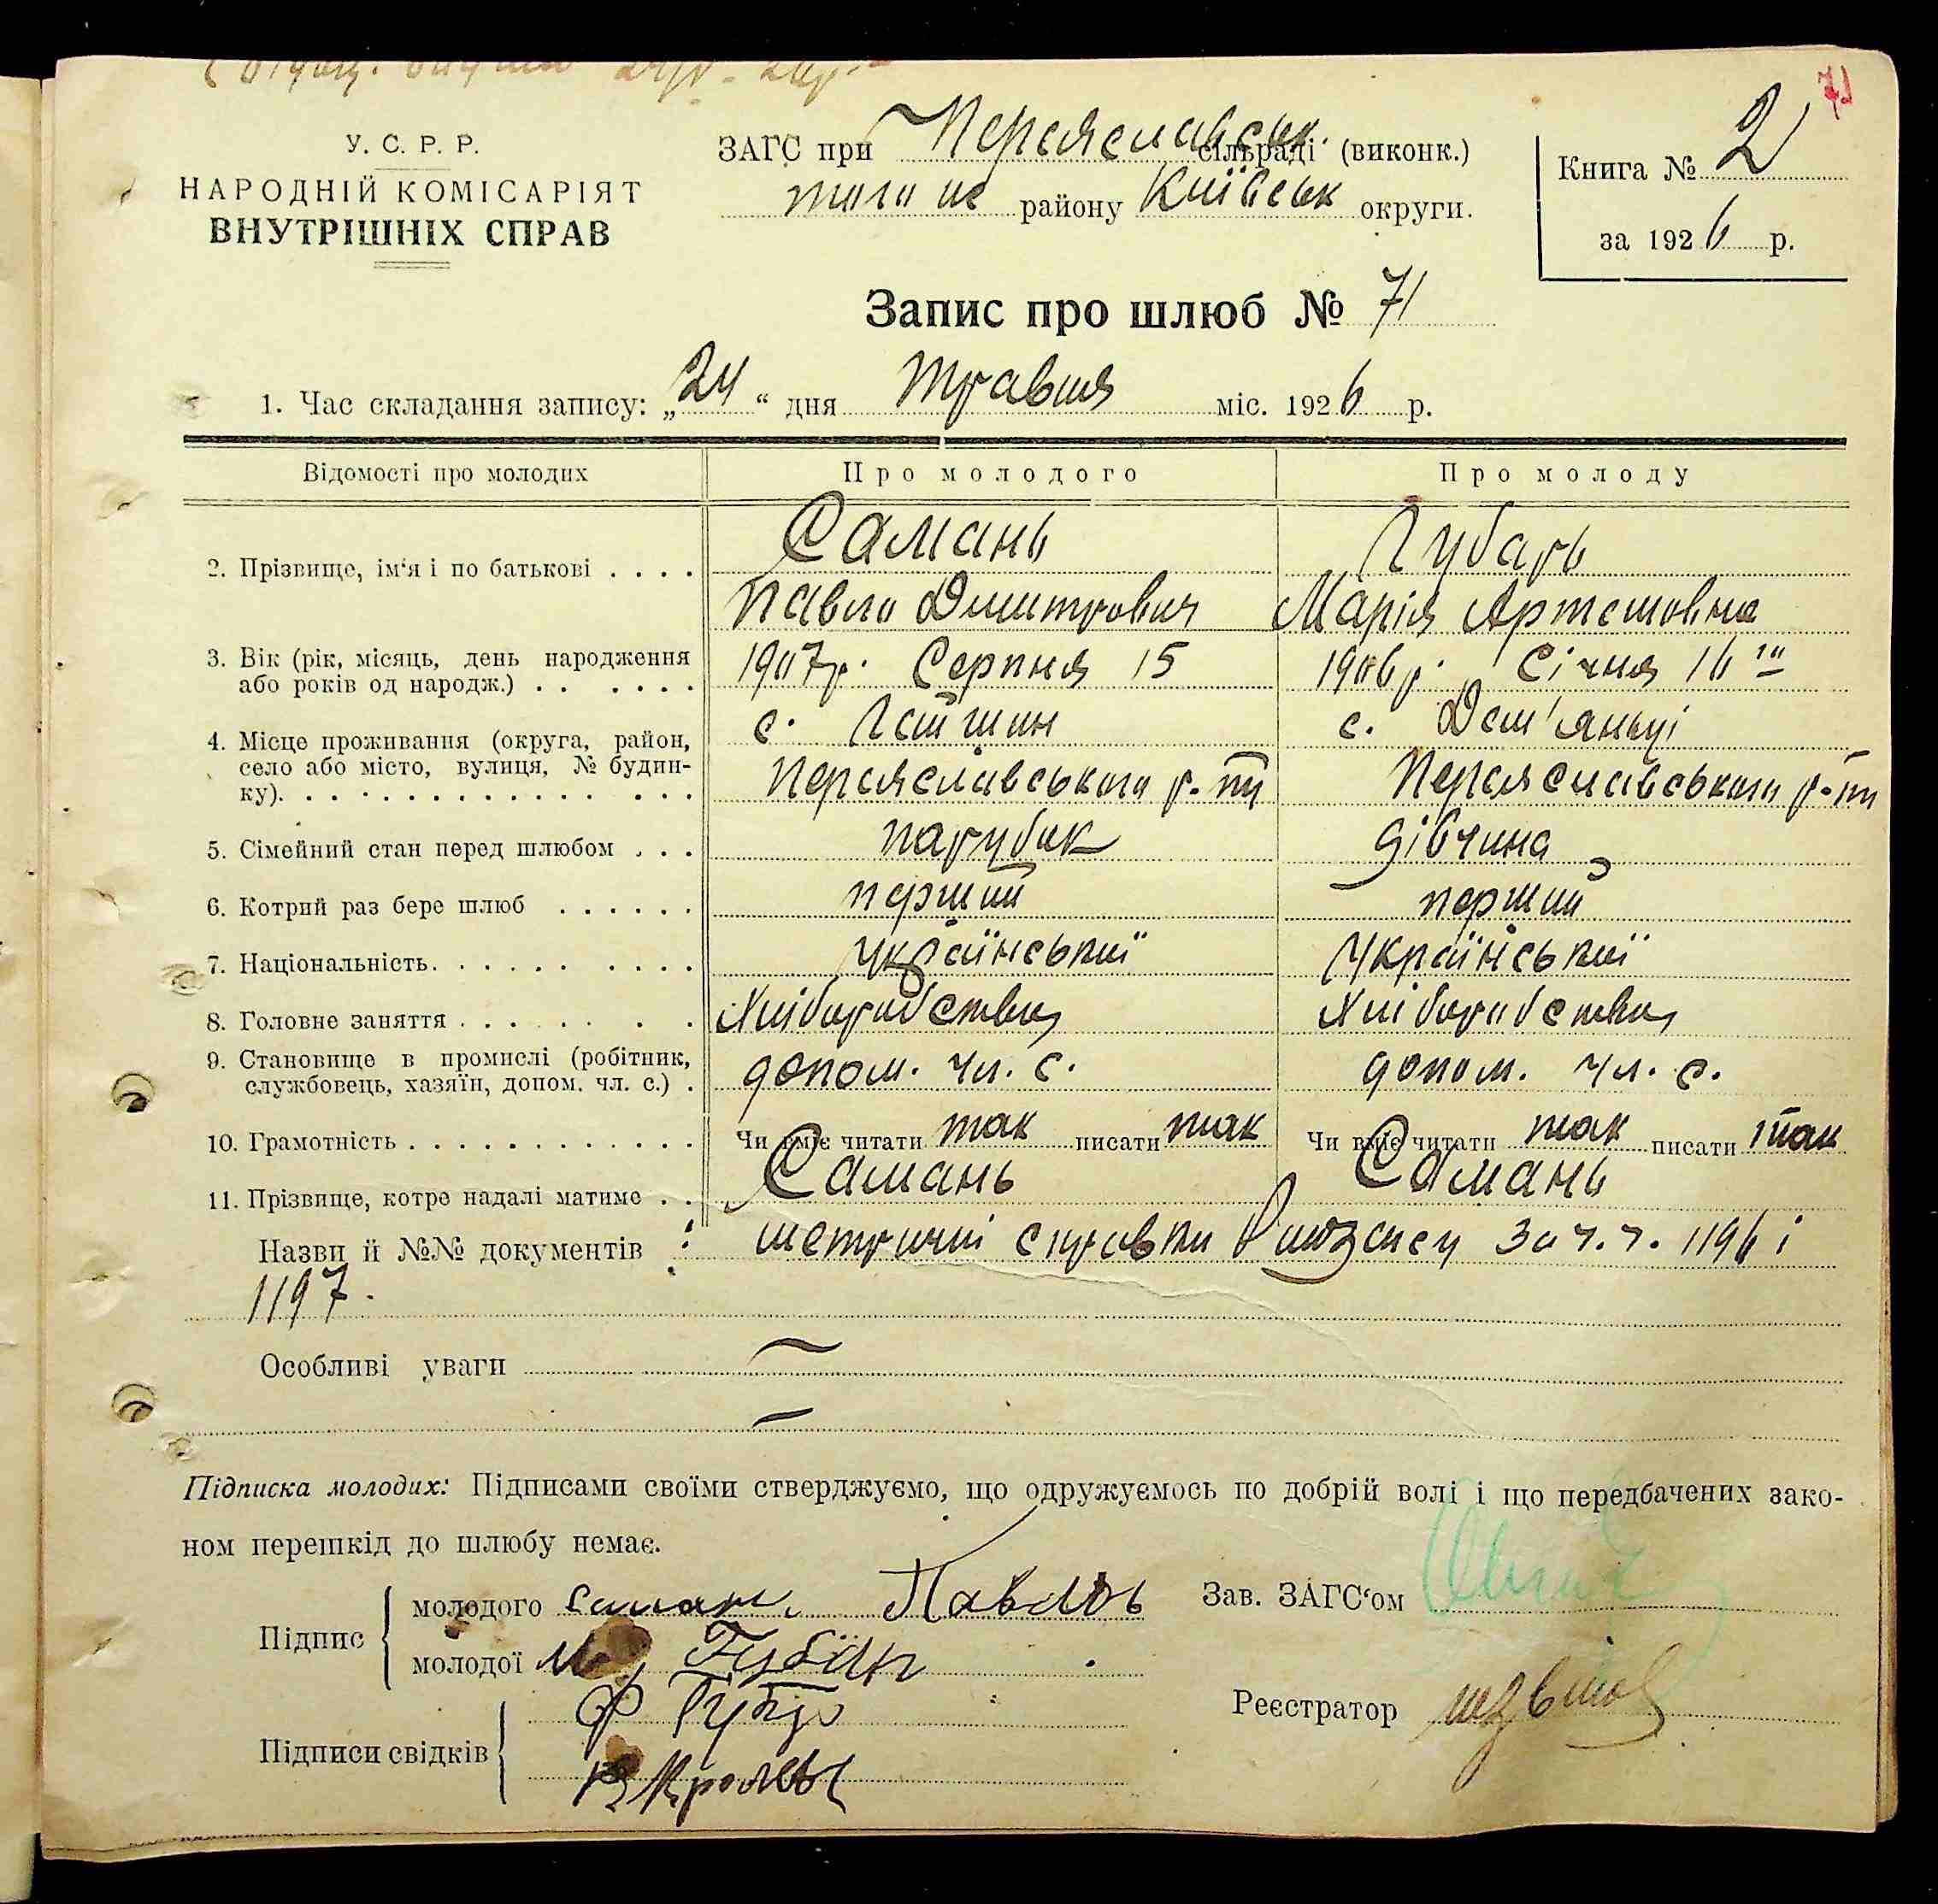 71
У. С. Р. Р.
НАРОДНІЙ КОМІСАРІЯТ
ВНУТРІШНІХ СПРАВ
ЗАГС при Переяславськ. сільраді (виконк.)
того ж району Київськ округи.
Книга № 2
за 1926 р.
Запис про шлюб № 71
1. Час складання запису: „24“ дня травня міс. 1926 р.
Відомості про молодих Про молодого Про молоду
2. Прізвище, ім‘я і по батькові . . . . Самань Губарь
Павло Дмитрович Марія Артемовна
3. Вік (рік, місяць, день народження 1907 р. Серпня 15 1906 р. Січня 16 го
або років од народж.) . . . . . .
4. Місце проживання (округа, район, с. Гайшин с. Дем'янці
село або місто, вулиця, № будин- Переяславського р-ну Переяславського р-ну
ку). . . . . . . . . . . . . . . . .
5. Сімейний стан перед шлюбом . . . парубок дівчина
6. Котрий раз бере шлюб . . . . . . перший перший
7. Національність. . . . . . . . . . український український
8. Головне заняття . . . . . . . . Хліборобство Хліборобство
9. Становище в промислі (робітник, допом. чл. с. допом. чл. с.
службовець, хазяїн, допом. чл. с.) .
10. Грамотність . . . . . . . . . . . . Чи вміє читати так писати так Чи вміє читати так писати так
11. Прізвище, котре надалі матиме . . Самань Самань
Назви й №№ документів : метричні справки за ч.ч. 1196 і
1197.
Особливі уваги —
—
Підписка молодих: Підписами своїми стверджуємо, що одружуємось по добрій волі і що передбачених зако-
ном перешкід до шлюбу немає.
Підпис молодого Самань Павло
молодої М. Губарь
Зав. ЗАГС‘ом
Підписи свідків Ф
Реєстратор